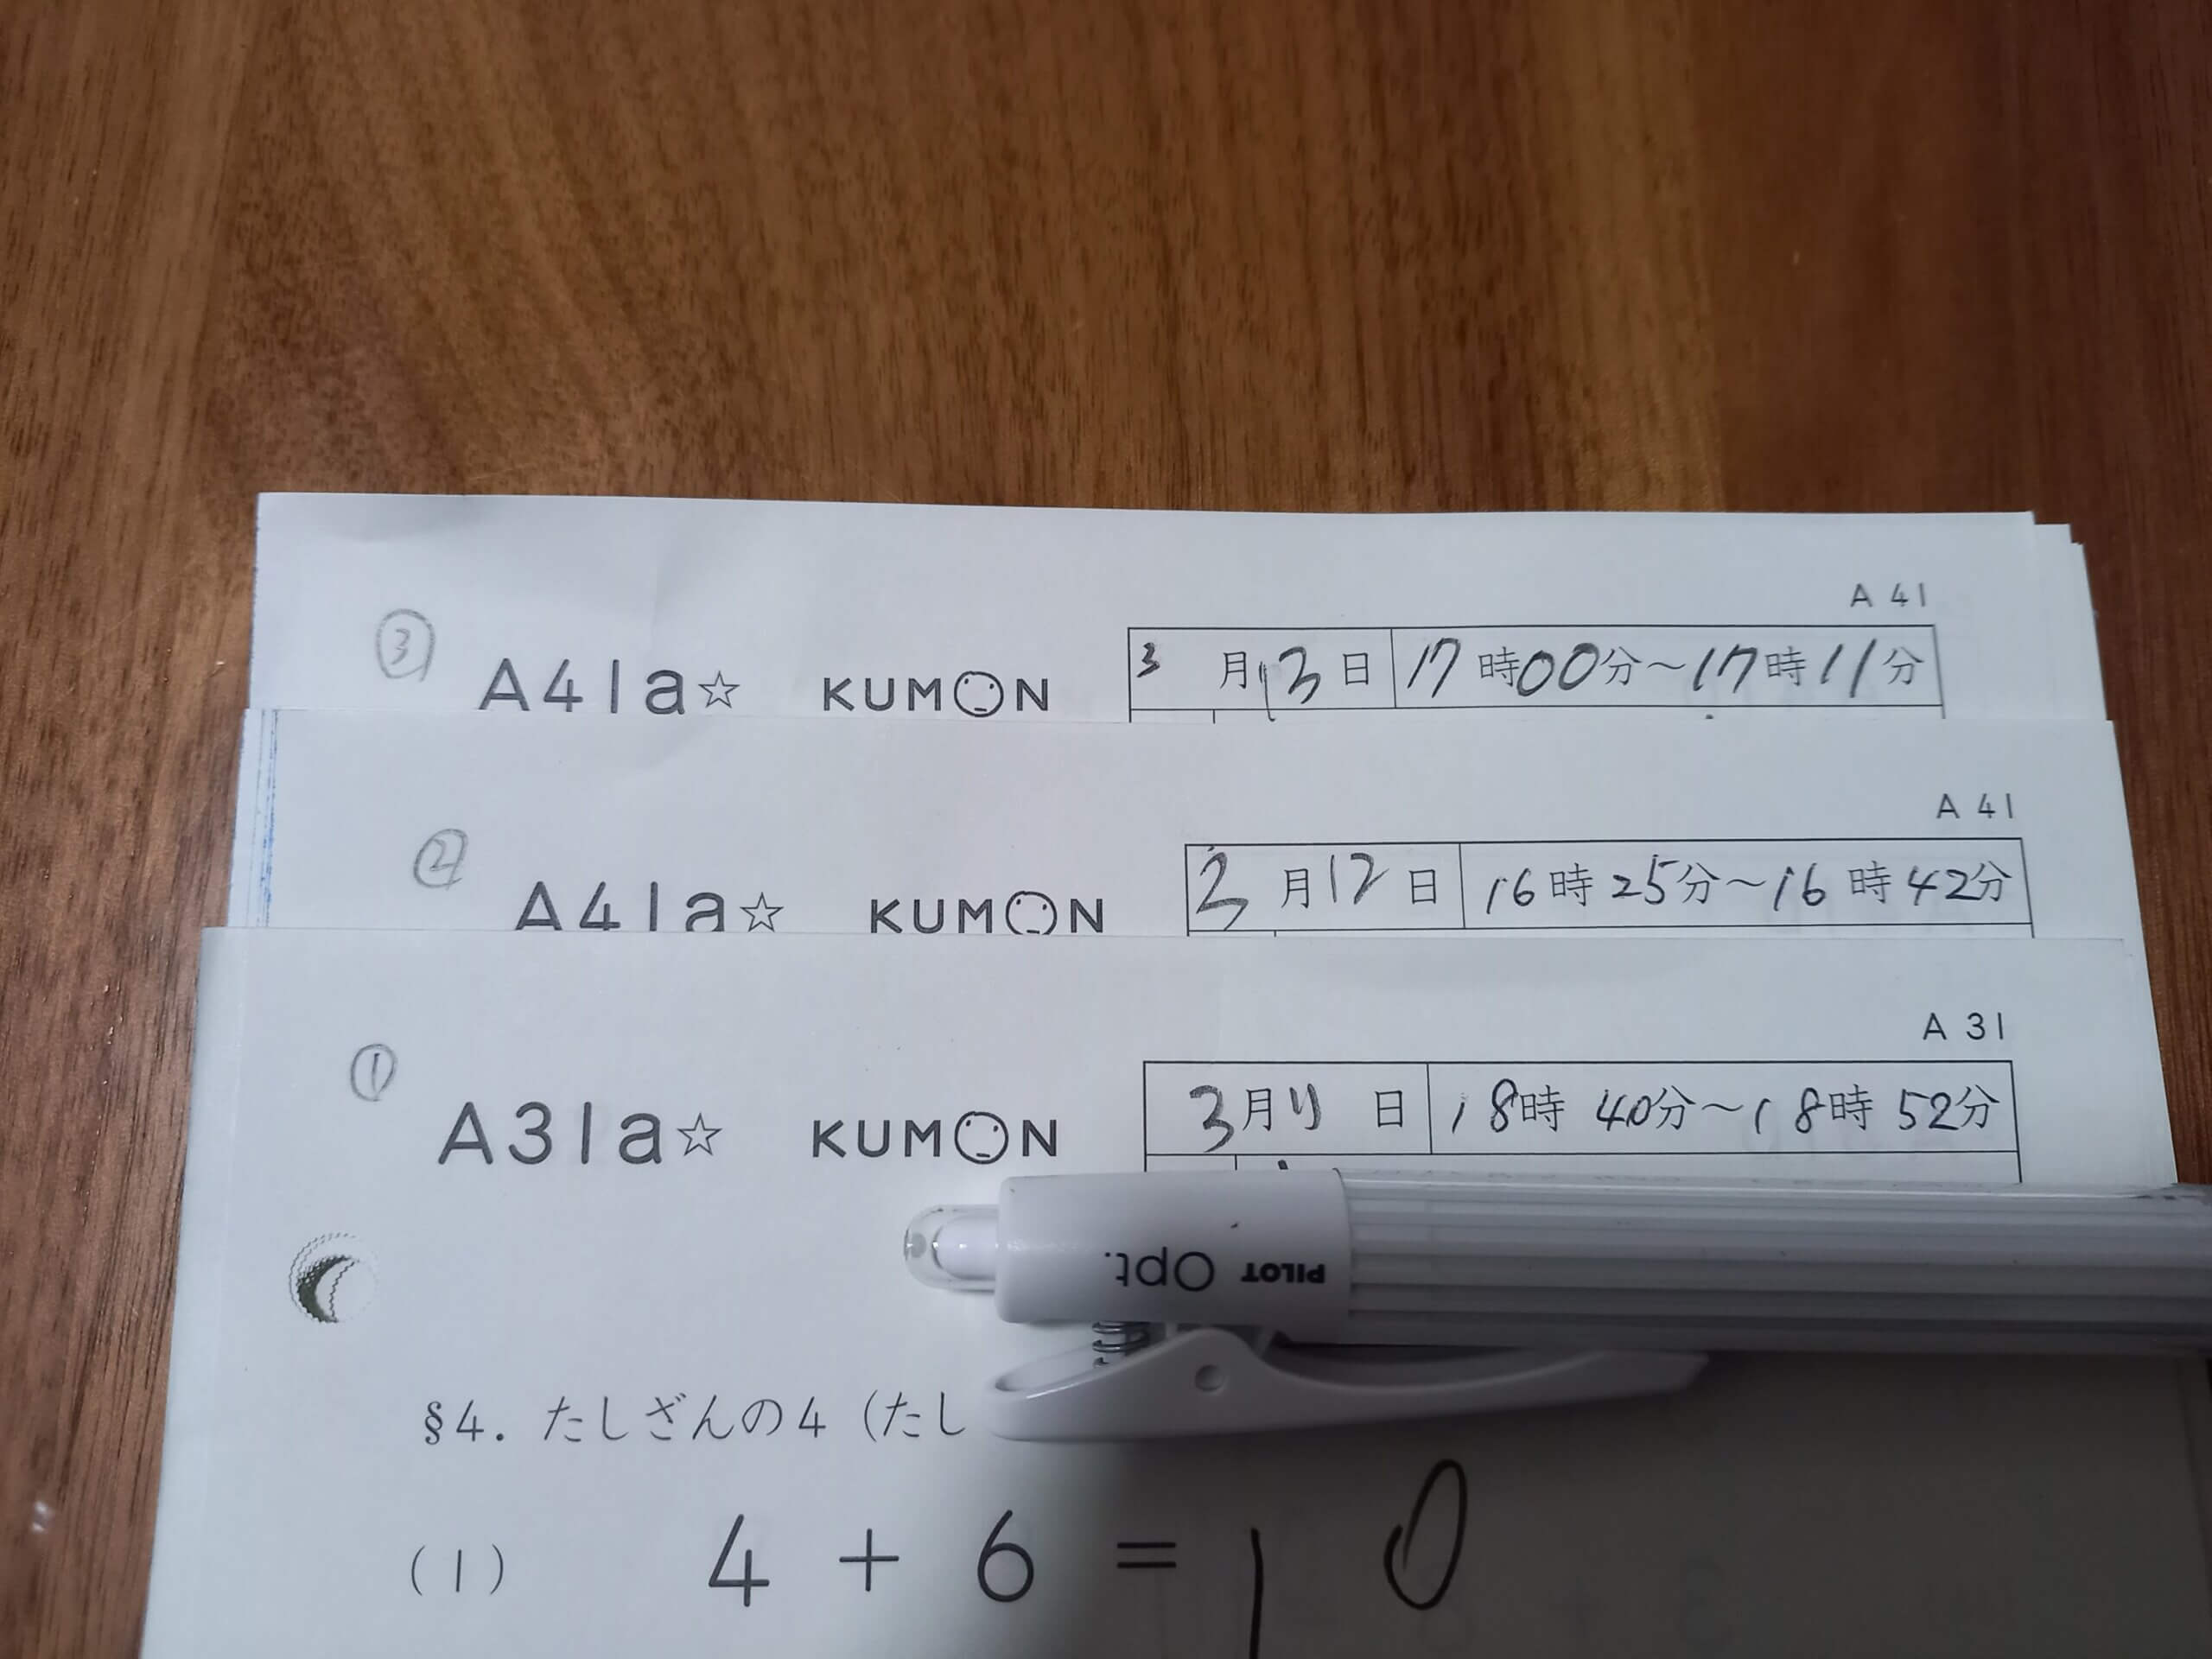 A 41
③ A41a☆ KUMON 3月13日 17時00分～17時11分
A 41
② A41a☆ KUMON 3月12日 16時25分～16時42分
A 31
① A31a☆ KUMON 3月 日 18時40分～18時52分
PILOT Opt.
§4. たしざんの4 (たし
(1) 4 + 6 = 10